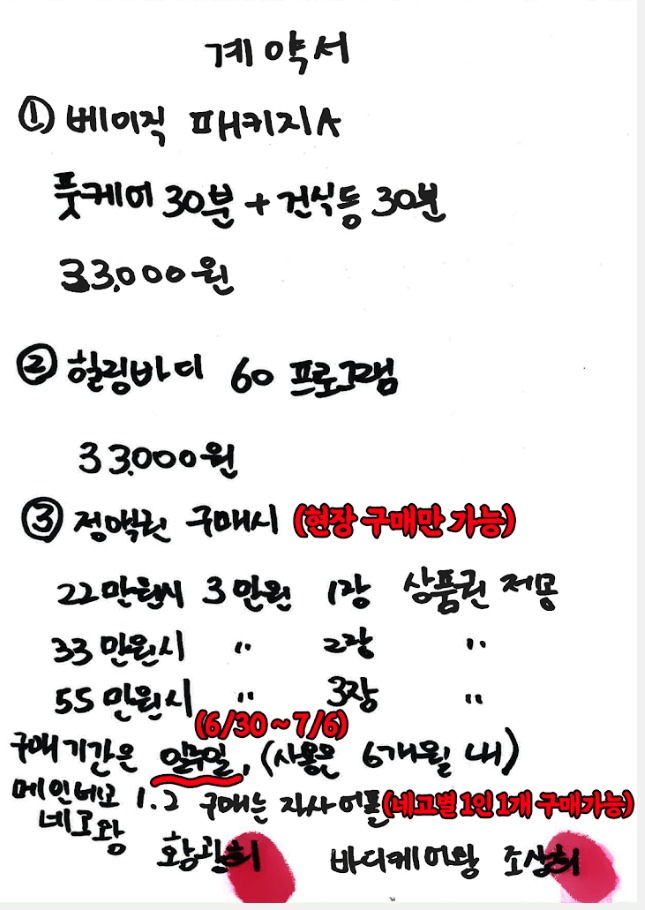 계약서
① 베이직 패키지A
풋케어 30분 + 건식등 30분
33,000원
② 힐링바디 60 프로그램
33,000원
③ 정액권 구매시 (현장 구매만 가능)
22만원시 3만원 1장 상품권 제공
33만원시 〃 2장 〃
55만원시 〃 3장 〃
(6/30 ~ 7/6)
구매기간은 일주일, (사용은 6개월 내)
메인네고 1.2 구매는 자사어플 (네고별 1인 1개 구매가능)
네고왕 황광희 바디케어왕 조상희